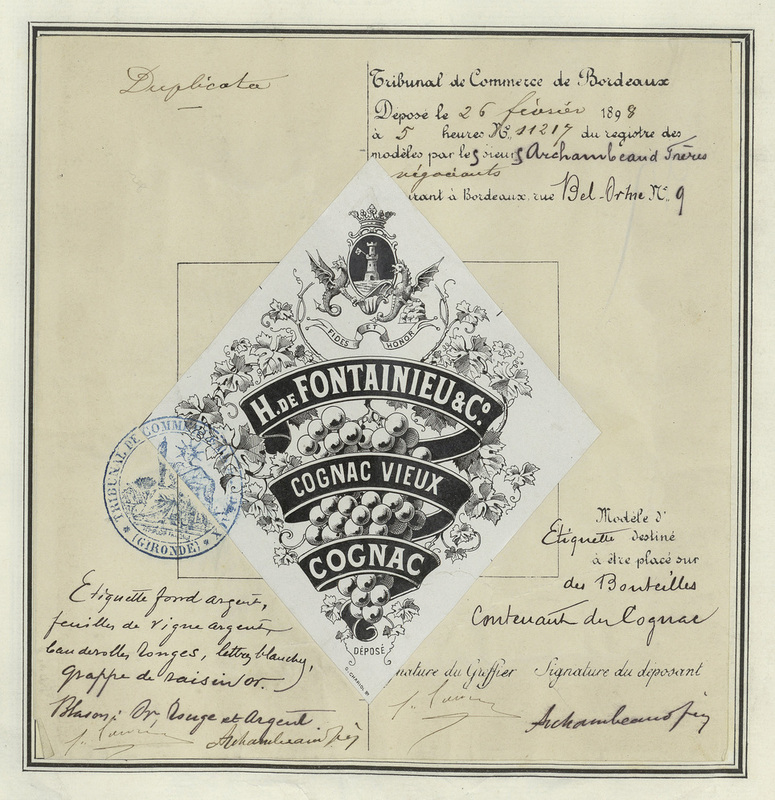 Duplicata
Tribunal de Commerce de Bordeaux
Déposé le 26 février 1898
à 5 heures No. 11217 du registre des
modèles par les sieurs Archambeaud Frères
négociants
urant à Bordeaux, rue Bel-Orme No. 9
FIDES ET HONOR
H. DE FONTAINIEU & Co.
COGNAC VIEUX
COGNAC
DÉPOSÉ
TRIBUNAL DE COMMERCE
(GIRONDE)
Modèle d'
Etiquette destiné
à être placé sur
des Bouteilles
Contenant du Cognac
Etiquette fond argent,
feuilles de vigne argent,
banderolles rouges, lettres blanches,
grappe de raisin or.
Blason: Or, Rouge et Argent
Archambeaud fres
nature du Greffier Signature du déposant
Archambeaud frs